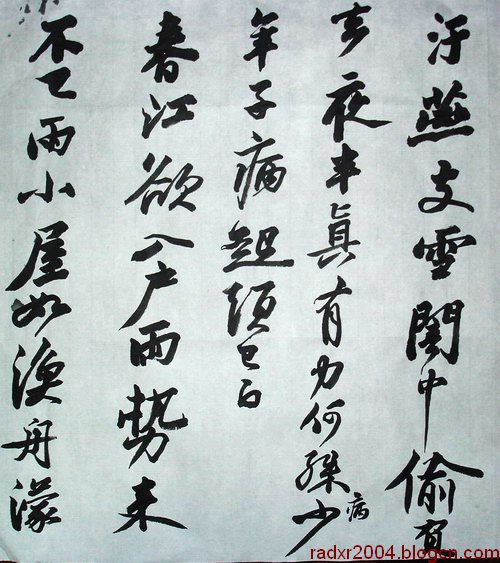 汙燕支雪闇中偷負
去夜半眞有力何殊少
病
年子病起頭已白
春江欲入戶雨勢來
不已雨小屋如漁舟濛
radxr2004.blogcn.com